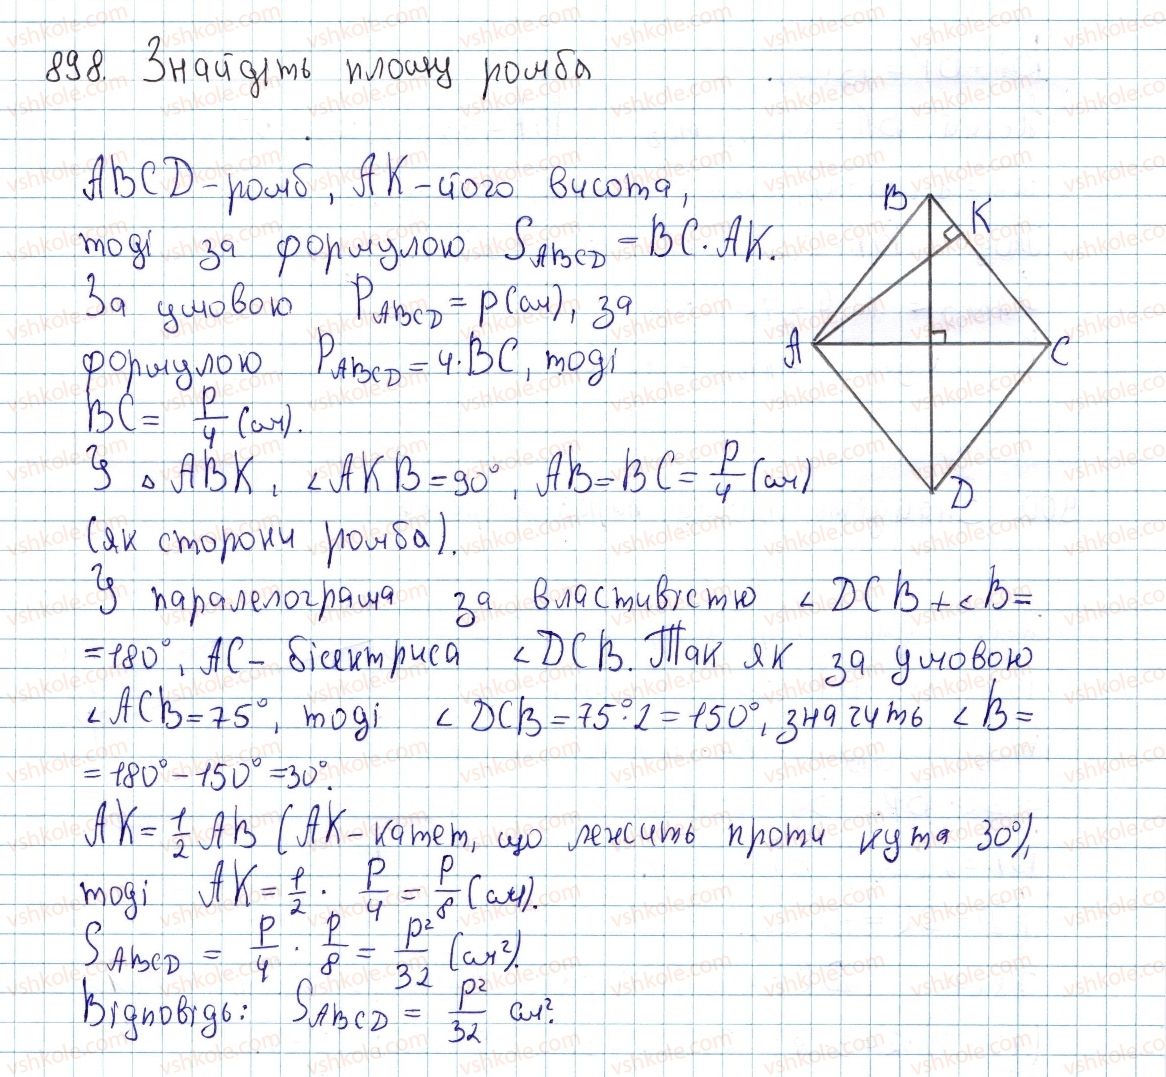 898. Знайдіть площу ромба
ABCD-ромб, AK-його висота,
тоді за формулою S_ABCD = BC·AK.
За умовою P_ABCD = p(см), за
формулою P_ABCD = 4·BC, тоді
BC = p/4 (см).
У △ ABK, ∠AKB = 90°, AB = BC = p/4 (см)
(як сторони ромба).
У паралелограма за властивістю ∠DCB + ∠B =
= 180°, AC - бісектриса ∠DCB. Так як за умовою
∠ACB = 75°, тоді ∠DCB = 75°·2 = 150°, значить ∠B =
= 180° - 150° = 30°.
AK = 1/2 AB (AK-катет, що лежить проти кута 30°),
тоді AK = 1/2 · p/4 = p/8 (см).
S_ABCD = p/4 · p/8 = p²/32 (см²).
Відповідь: S_ABCD = p²/32 см².
B
K
A
C
D
vshkole.com